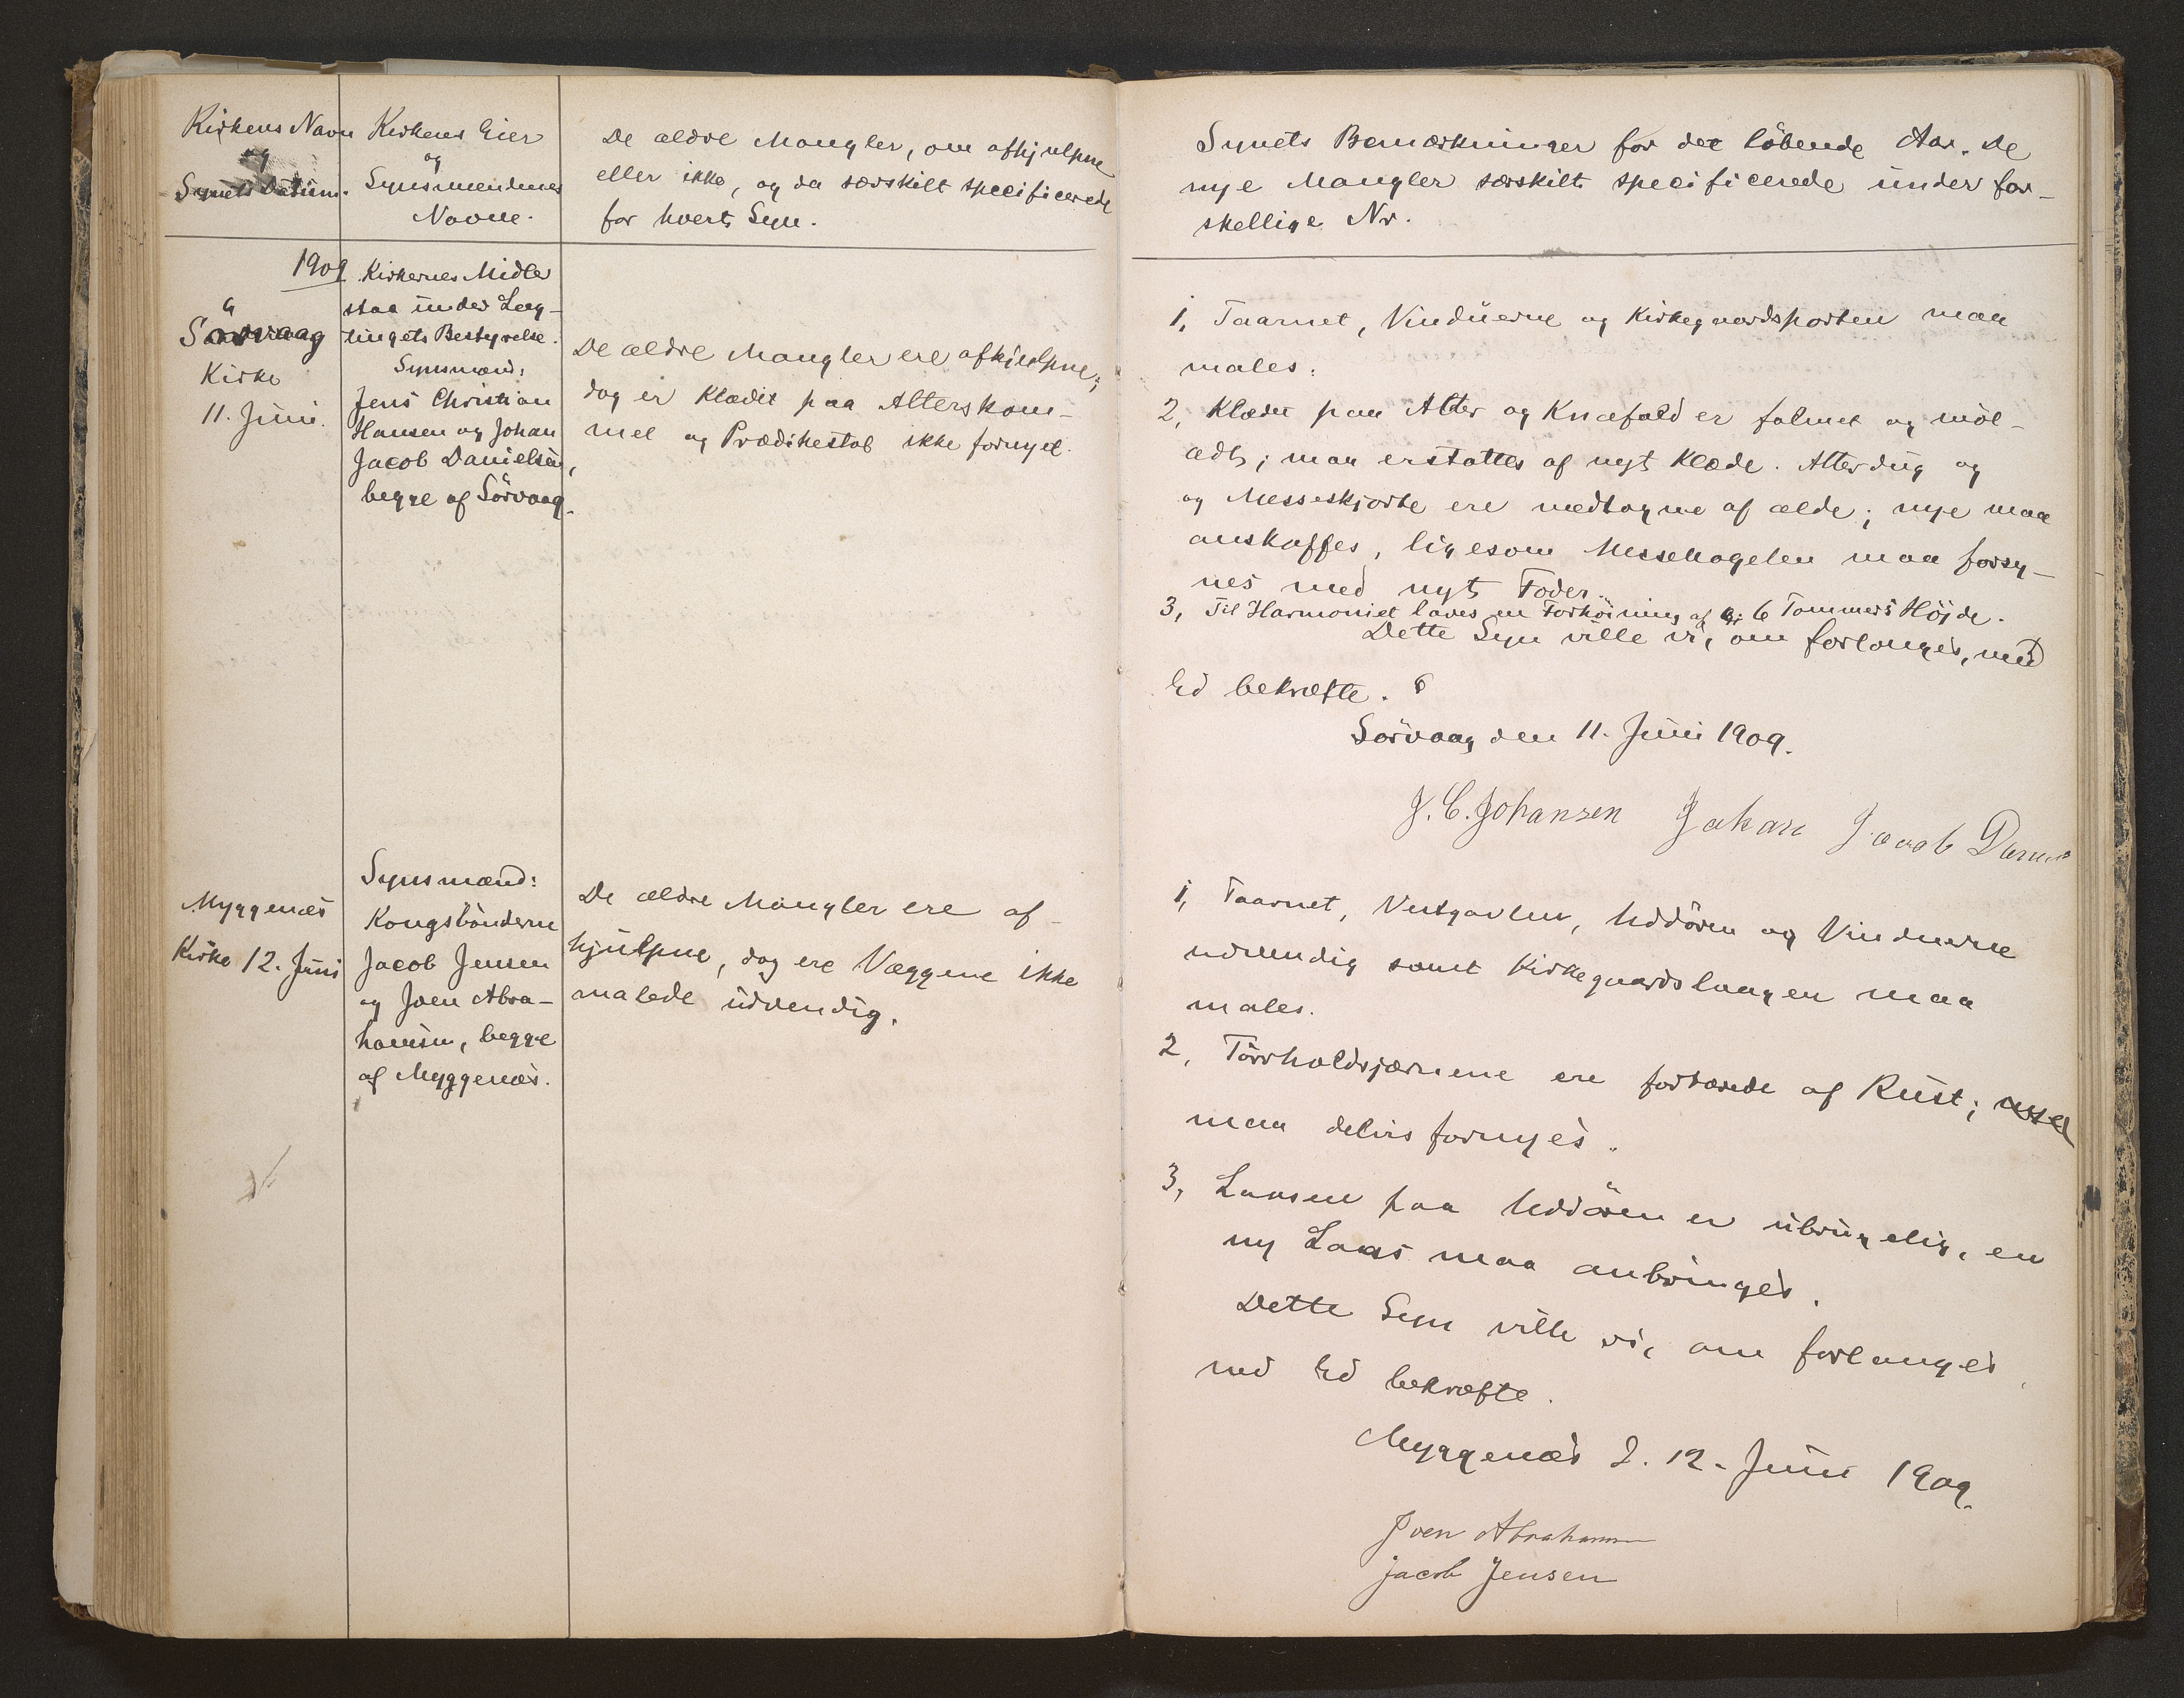 Kirkens Navn
og
Synets Datum.
Kirkens Eier
og
Synsmændenes
Navne.
De ældre Mangler, om afhjulpne
eller ikke, og da særskilt specificerede
for hvert Syn.
1909
Sörvaag
Kirke
11. Juni.
Kirkernes Midler
staa under Lag-
tingets Bestyrelse.
Synsmænd:
Jens Christian
Hansen og Johan
Jacob Danielsen,
begge af Sörvaag.
De ældre Mangler ere afhjulpne;
dog er Klædet paa Alterskam-
mel og Prædikestol ikke fornyet.
Myggenæs
Kirke 12. Juni
Synsmænd:
Kongsbönderne
Jacob Jensen
og Joen Abra-
hamsen, begge
af Myggenæs.
De ældre Mangler ere af-
hjulpne, dog ere Væggene ikke
malede udvendig.
Synets Bemærkninger for det löbende Aar. De
nye Mangler særskilt specificerede under for-
skellige Nr.
1, Taarnet, Vinduerne og Kirkegaardsporten maa
males.
2, Klædet paa Alter og Knæfald er falmet og möl-
ædt; maa erstattes af nyt Klæde. Alterdug og
og Messeskjorte ere medtagne af ælde; nye maa
anskaffes, ligesom Messehagelen maa forsy-
nes med nyt Foder.
3, Til Harmoniet laves en Forhöining af 6 Tommers Höjde.
Dette Syn ville vi, om forlanges, med
Ed bekræfte.
Sörvaag den 11. Juni 1909.
J. C. Johansen Johan Jacob
1, Taarnet, Vestgavlen, Uddören og Vinduerne
udvendig samt Kirkegaardslaagen maa
males.
2, Törrholdsjærnene ere fortærede af Rust;
maa delvis fornyes.
3, Laasen paa Uddören er ubrugelig, en
ny Laas maa anbringes.
Dette Syn ville vi, om forlanges,
med Ed bekræfte.
Myggenæs d. 12. Juni 1909.
Joen Abrahamsen
Jacob Jensen